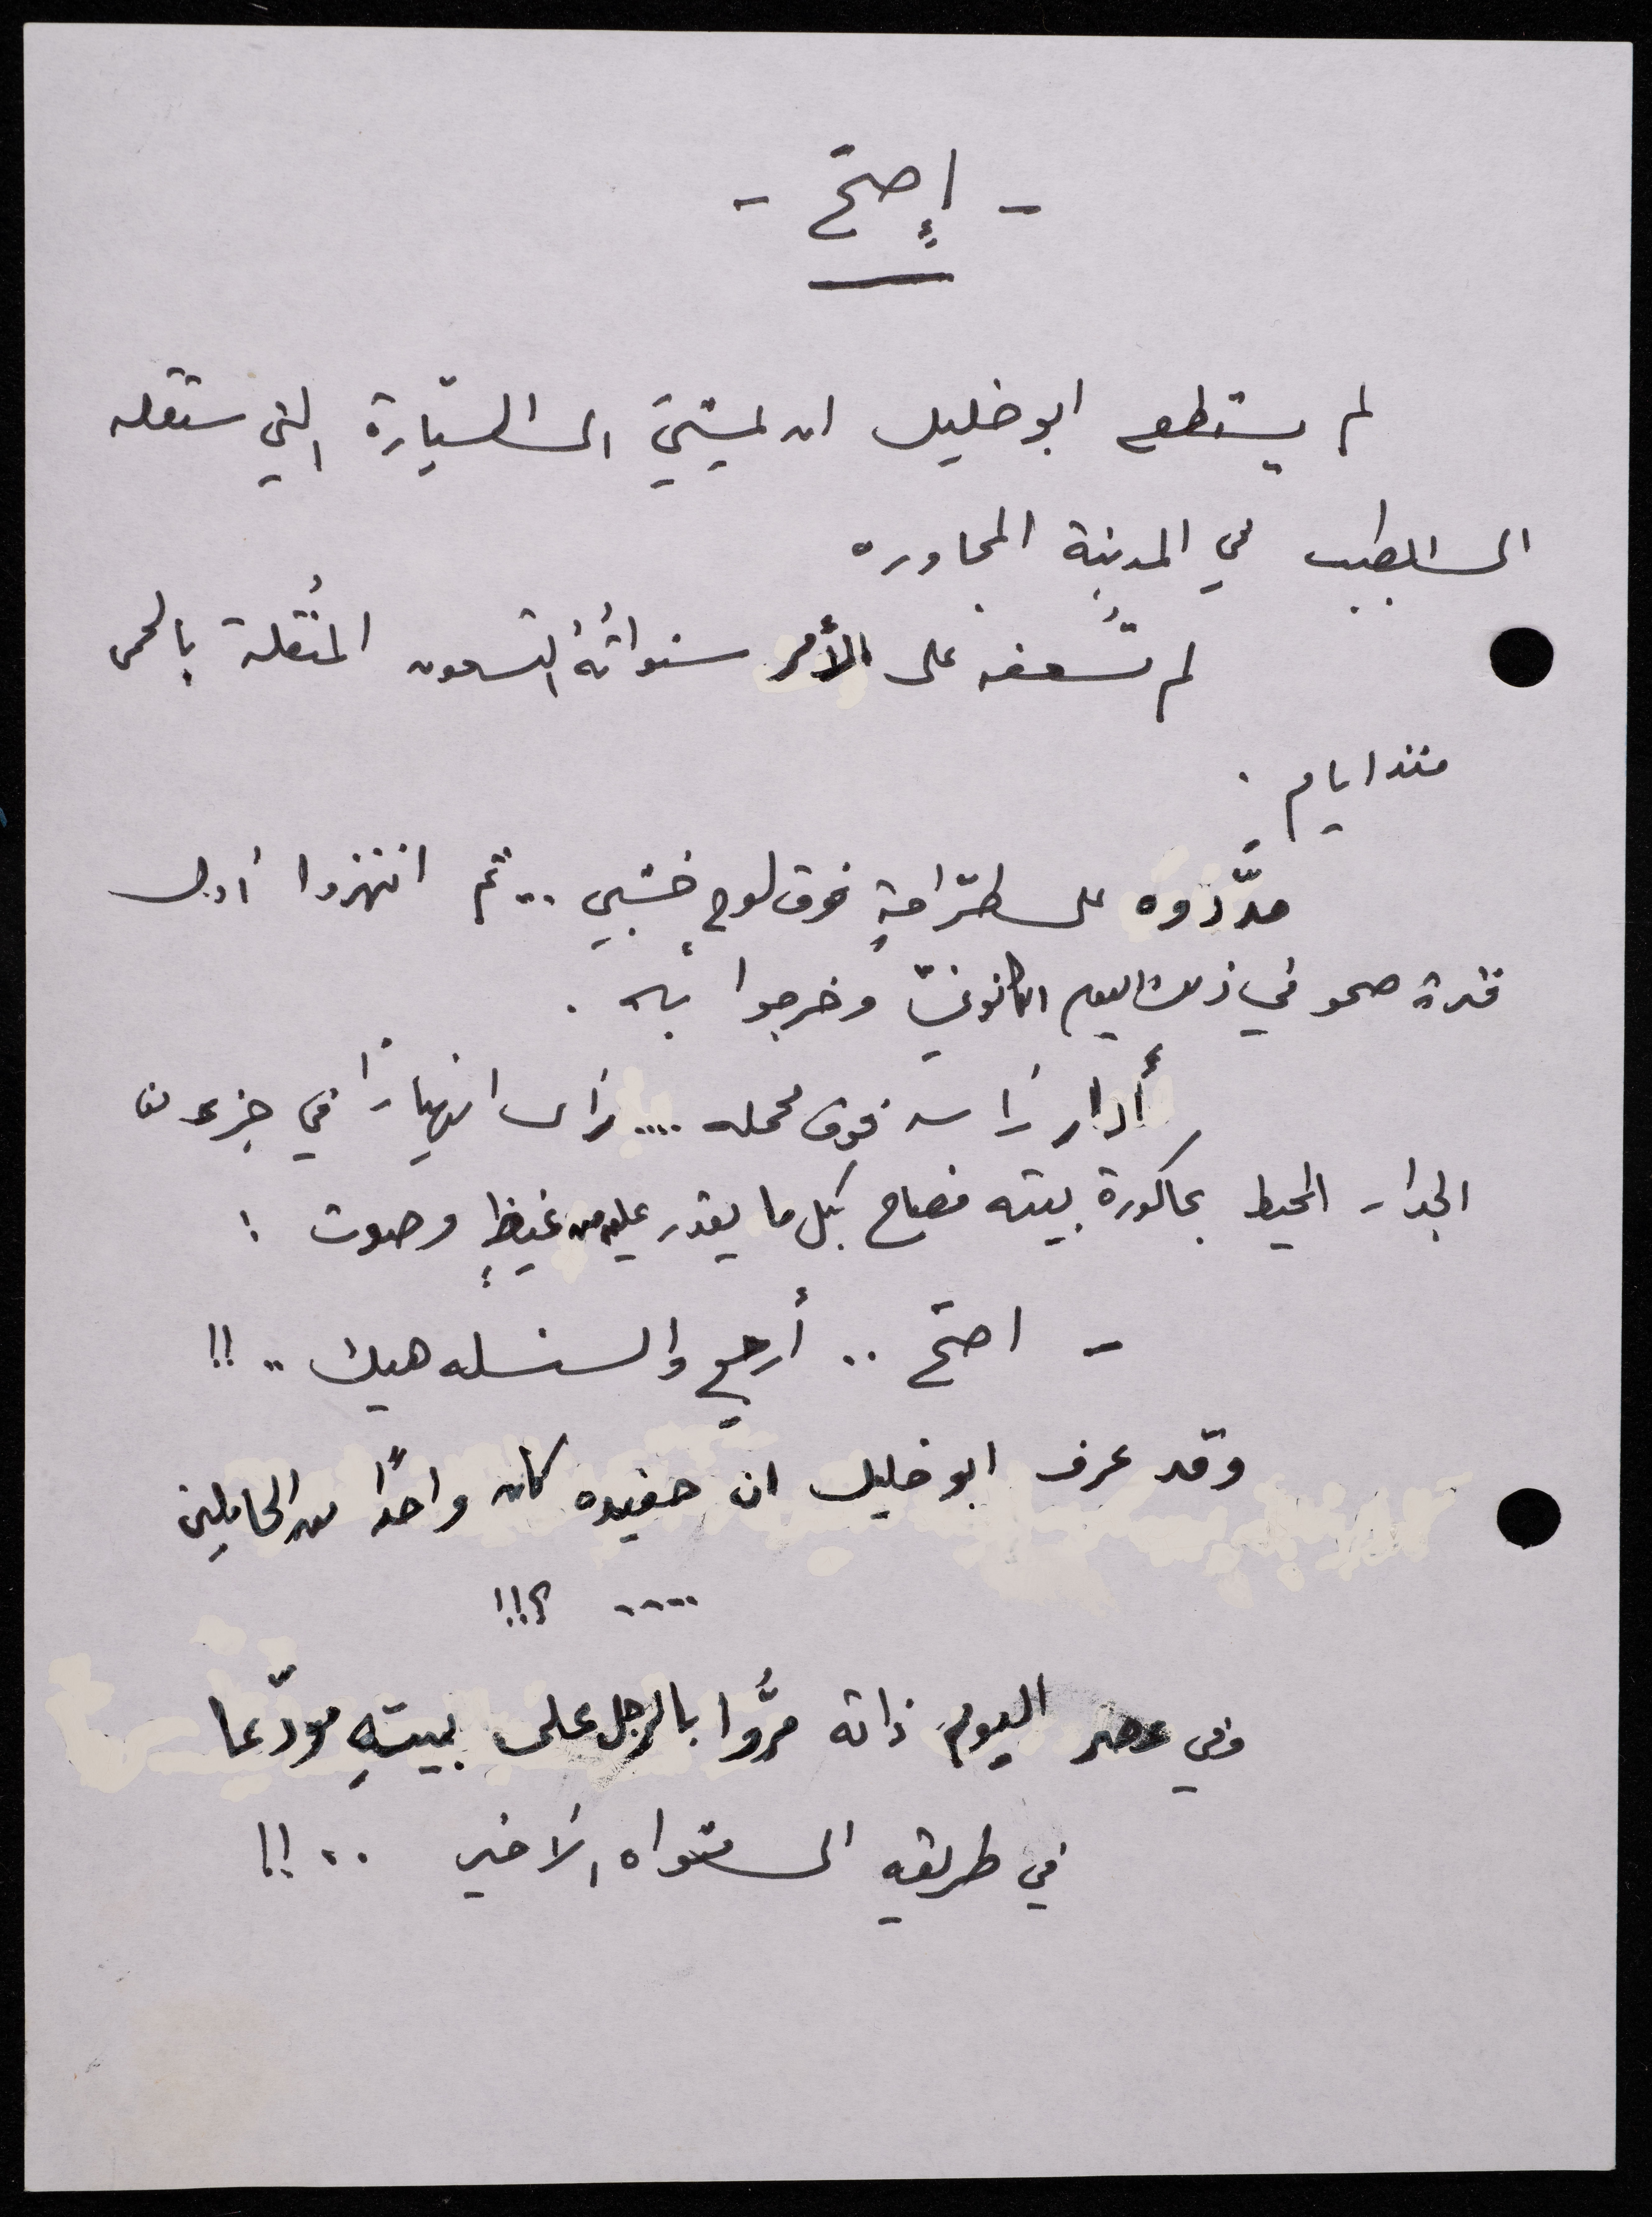 - إصحَ -
لم يستطع ابو خليل ان يمشيَ الى السيّارة التي ستقله
الى الطبيب في المدينة المجاوره
لم تُسعفه على الأمر سنواتُهُ التسعون المُثقلة بالحمى
منذ ايام .
مدَّدَوه على طرّاحةٍ فوق لوحٍ خشبي ... ثم انتهزوا أول
فترة صحو في ذلك اليوم الكانونيّ وخرجوا به .
أدار رأسه فوق محمله .... رأى انهيارًا في جزء من
الجدار المحيط بحاكورة بيته فصاح بكل ما يقدر عليه من غيظٍ وصوت :
- اصحَ .. أرجع والسنسله هيك .. !!
وقد عرف ابو خليل ان حفيده كان واحدًا من الحاملين
..... ؟!!!
وفي عصر اليوم ذاته مرُّوا بالرجل على بيتهِ مودّعا
في طريقه الى مثواه الاخير .. !!